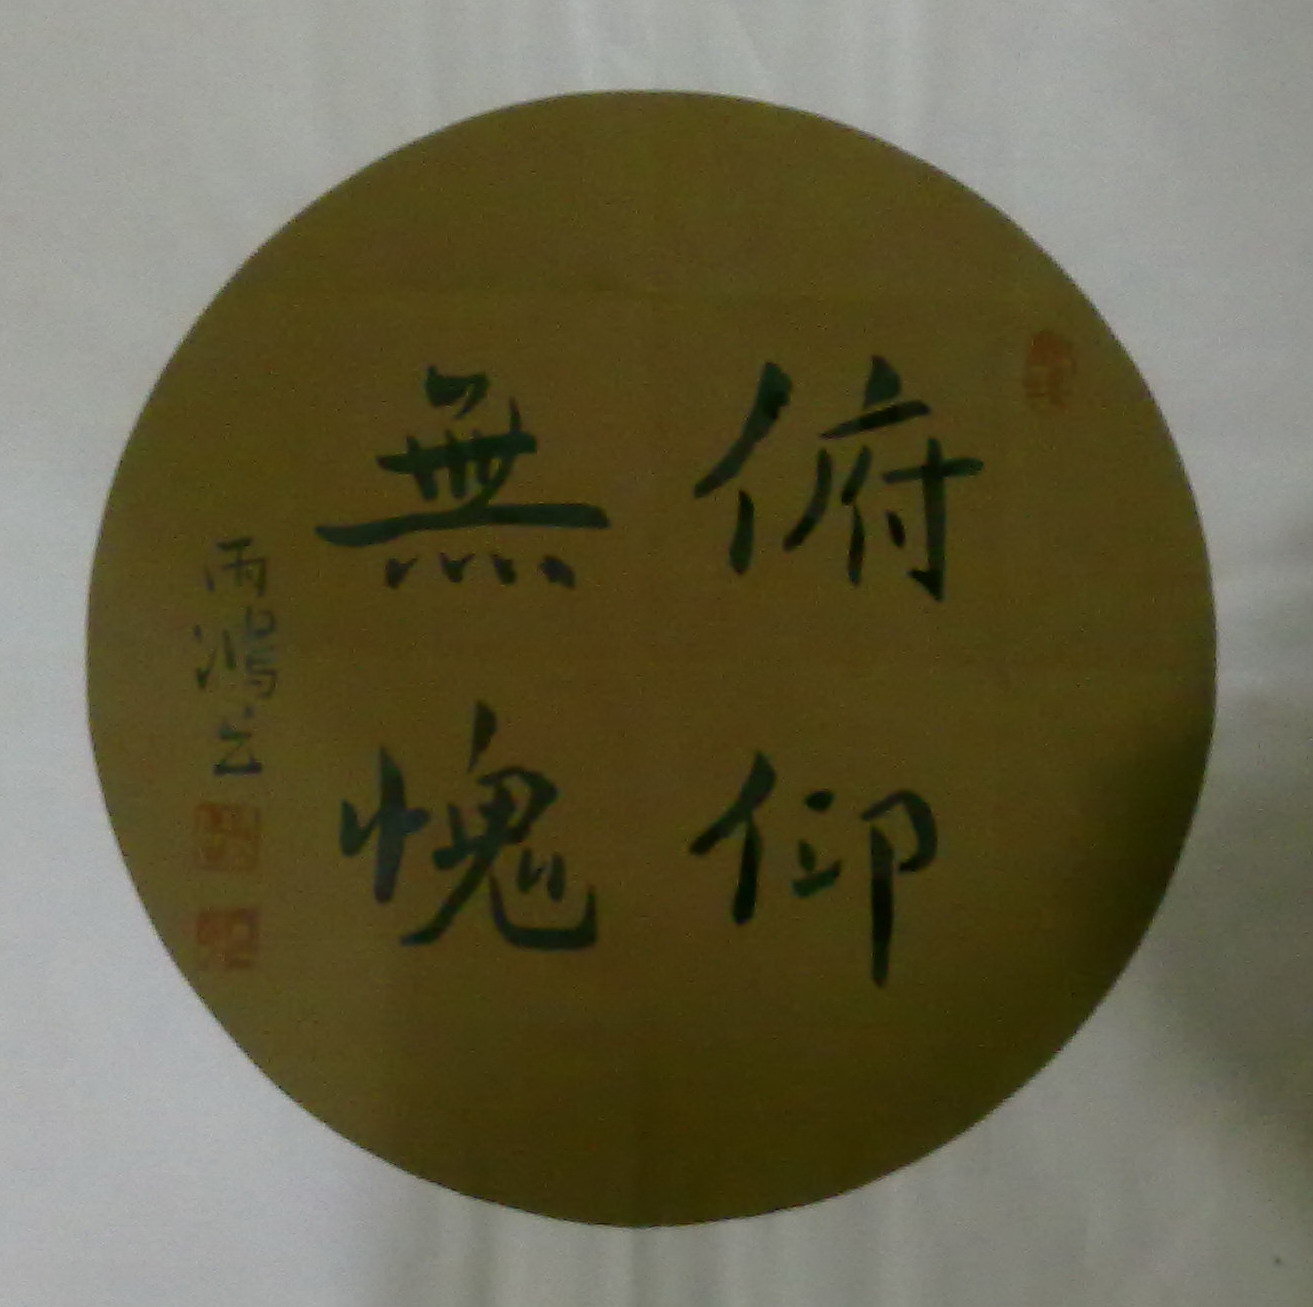 俯仰
無愧
雨鴻书